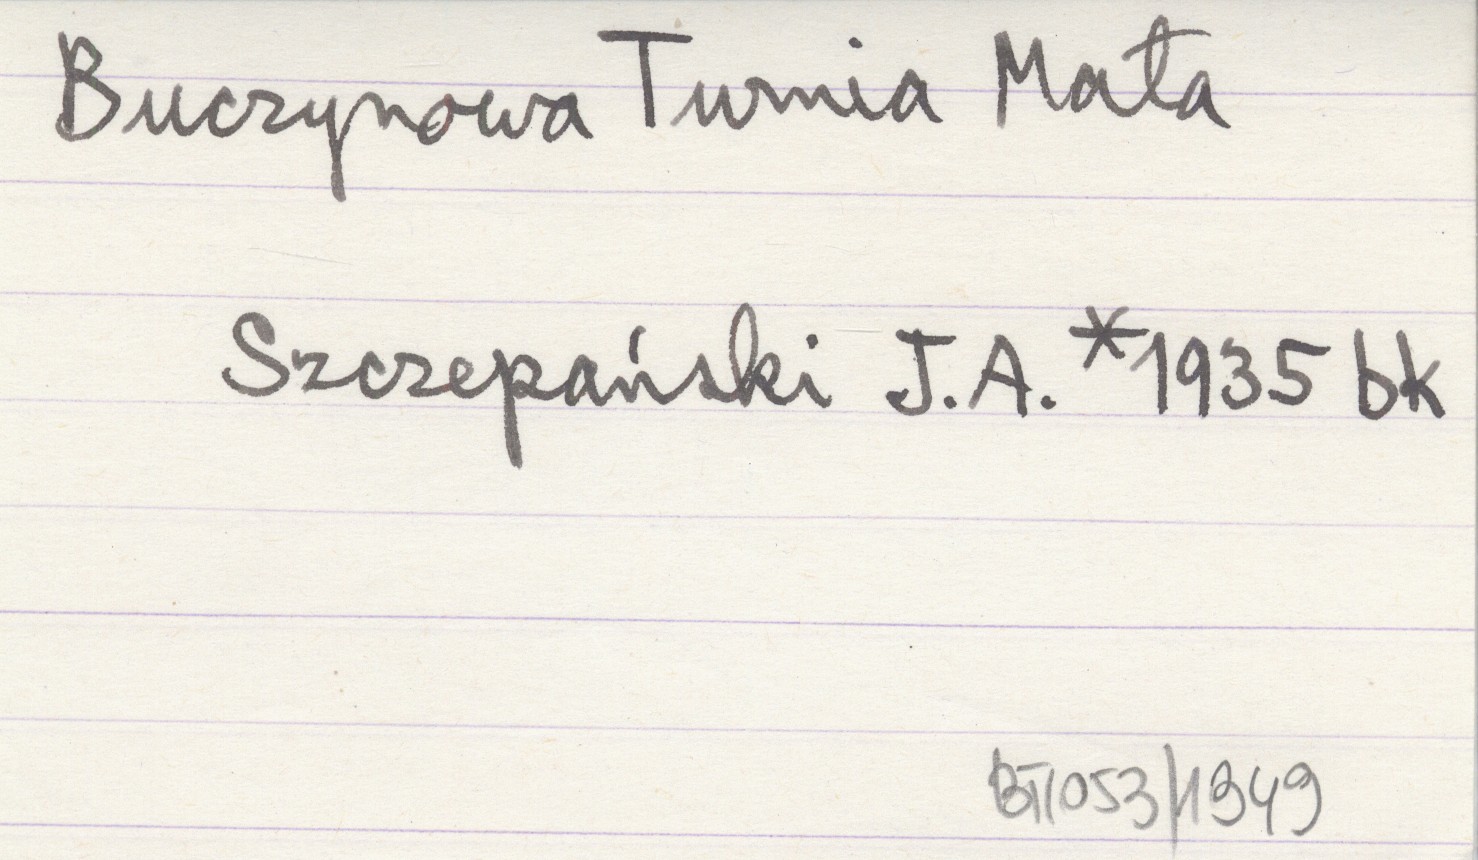 Buczynowa Turnia Mała
Szczepański J.A. *1935 bk
BT/053/1949